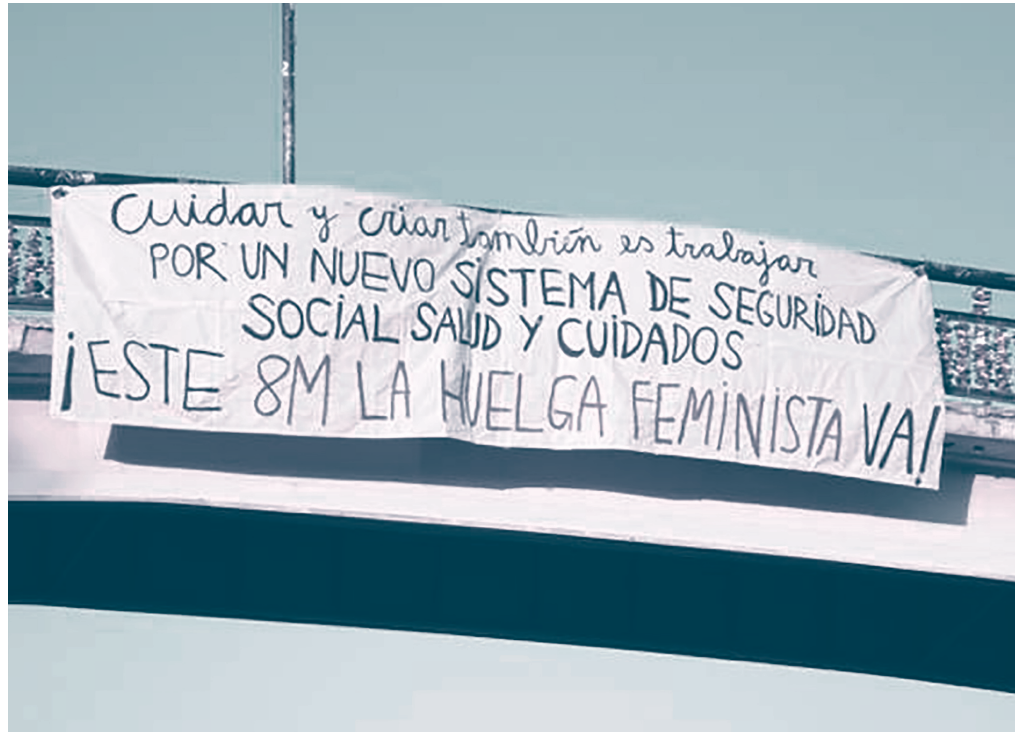 Cuidar y criar también es trabajar
POR UN NUEVO SISTEMA DE SEGURIDAD
SOCIAL SALUD Y CUIDADOS
¡ESTE 8M LA HUELGA FEMINISTA VA!